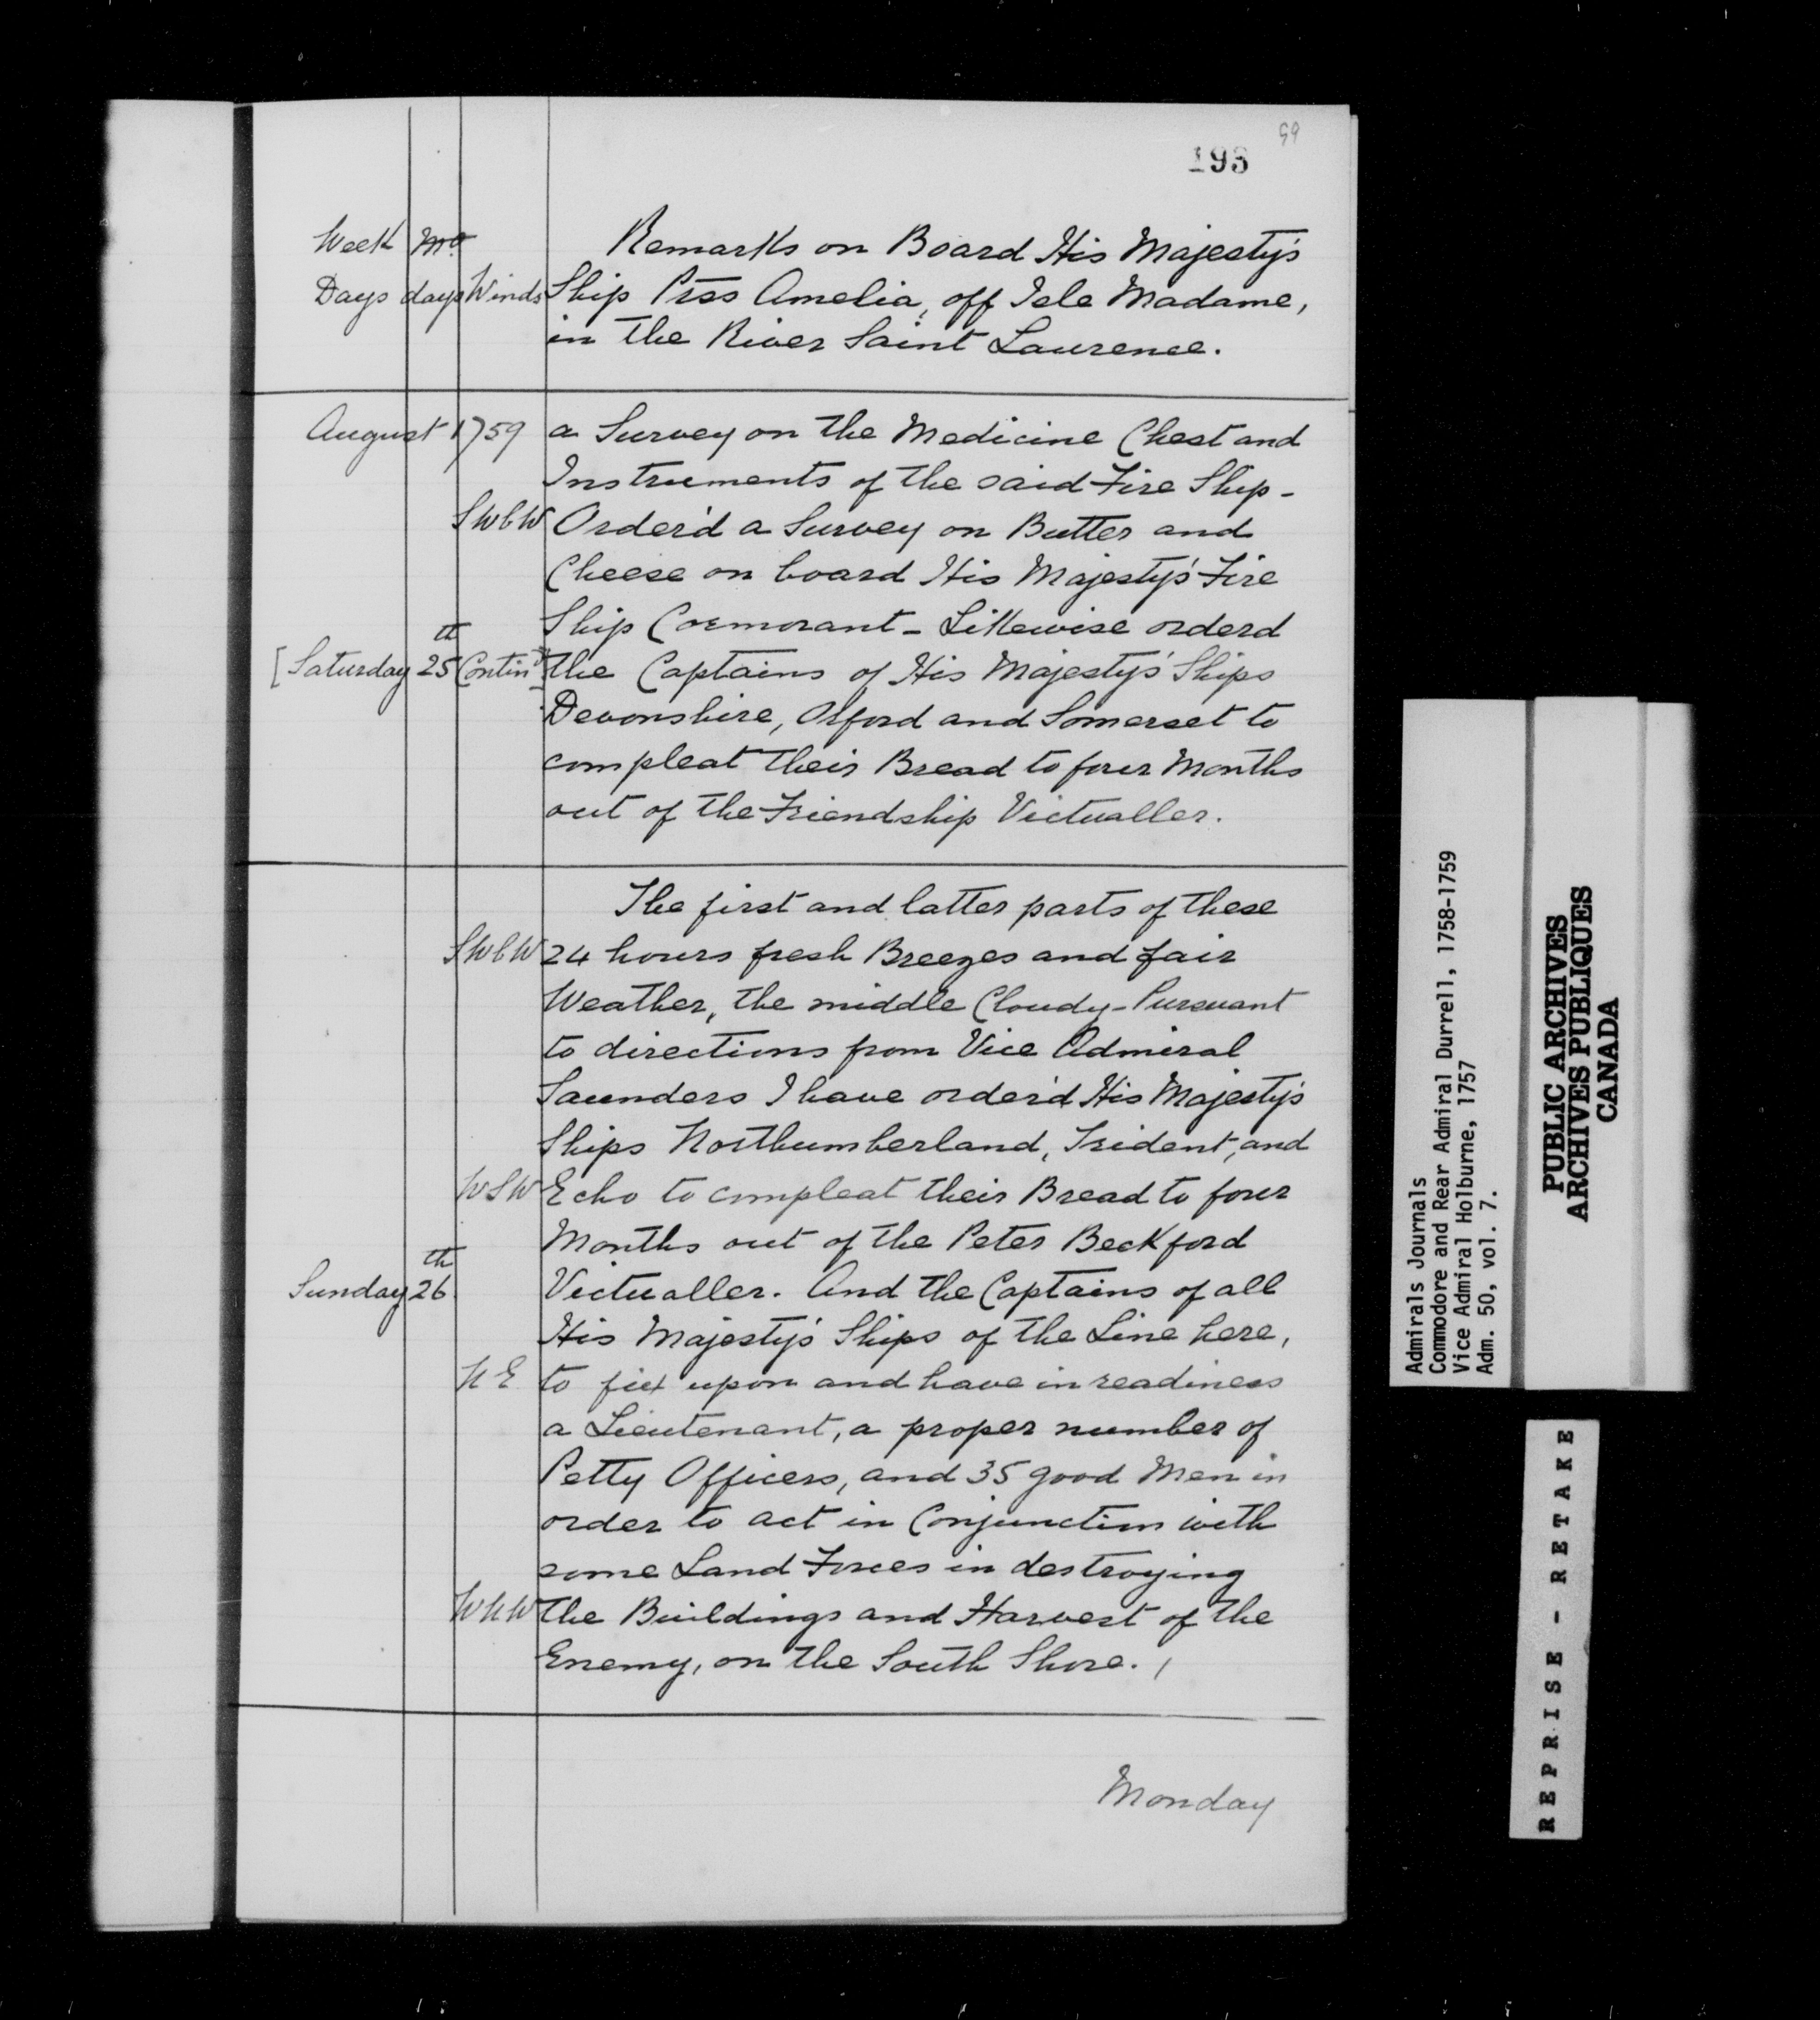 99
193
Week Mo. Remarks on Board His Majesty's
Days days Winds Ship Prss Amelia, off Isle Madame,
in the River Saint Laurence.
August 1759 a Survey on the Medicine Chest and
Instruments of the said Fire Ship -
SWbW Order'd a Survey on Butter and
Cheese on board His Majesty's Fire
Ship Cormorant - Likewise orderd
[Saturday 25th Contind] the Captains of His Majesty's Ships
Devonshire, Orford and Somerset to
compleat their Bread to four Months
out of the Friendship Victualler.
The first and latter parts of these
SWbW 24 hours fresh Breezes and fair
Weather, the middle Cloudy - Pursuant
to directions from Vice Admiral
Saunders I have order'd His Majesty's
Ships Northumberland, Trident, and
WSW Echo to compleat their Bread to four
Months out of the Peter Beckford
Sunday 26th Victualler. And the Captains of all
His Majesty's Ships of the Line here,
NE to fix upon and have in readiness
a Lieutenant, a proper number of
Petty Officers, and 35 good Men in
order to act in Conjunction with
some Land Forces in destroying
WNW the Buildings and Harvest of the
Enemy, on the South Shore.
Monday
Admirals Journals
Commodore and Rear Admiral Durrell, 1758-1759
Vice Admiral Holburne, 1757
Adm. 50, vol. 7.
PUBLIC ARCHIVES
ARCHIVES PUBLIQUES
CANADA
REPRISE - RETAKE